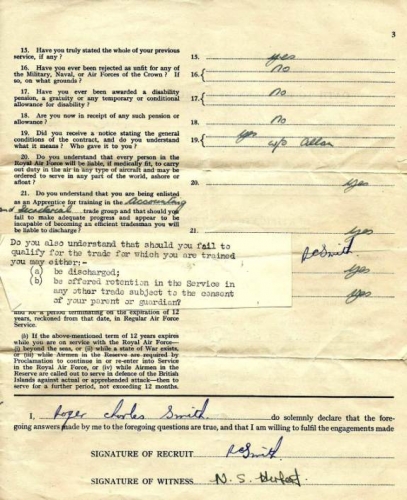 3
15. Have you truly stated the whole of your previous
service, if any ? 15. yes
16. Have you ever been rejected as unfit for any of the
Military, Naval, or Air Forces of the Crown ? If
so, on what grounds ? 16. { no
17. Have you ever been awarded a disability
pension, a gratuity or any temporary or conditional
allowance for disability ? 17. { no
18. Are you now in receipt of any such pension or
allowance ? 18. no
19. Did you receive a notice stating the general
conditions of the contract, and do you understand
what it means ? Who gave it to you ? 19. { yes w/o Allan
20. Do you understand that every person in the
Royal Air Force will be liable, if medically fit, to carry
out duty in the air in any type of aircraft and may be
ordered to serve in any part of the world, ashore or
afloat ? 20. yes
21. Do you understand that you are being enlisted
as an Apprentice for training in the Accounting
and Secretarial trade group and that should you
fail to make adequate progress and appear to be
incapable of becoming an efficient tradesman you will
be liable to discharge ? 21. yes
Do you also understand that should you fail to
qualify for the trade for which you are trained
you may either:-
(a) be discharged;
(b) be offered retention in the Service in
any other trade subject to the consent
of your parent or guardian?
RCSmith
yes
yes
and for a period terminating on the expiration of 12
years, reckoned from that date, in Regular Air Force
Service.
(b) If the above-mentioned term of 12 years expires
while you are on service with the Royal Air Force—
(i) beyond the seas, or (ii) while a state of War exists,
or (iii) while Airmen in the Reserve are required by
Proclamation to continue in or re-enter into Service
in the Royal Air Force, or (iv) while Airmen in the
Reserve are called out to serve in defence of the British
Islands against actual or apprehended attack—then to
serve for a further period, not exceeding 12 months.
I, Roger Charles Smith do solemnly declare that the fore-
going answers made by me to the foregoing questions are true, and that I am willing to fulfil the engagements made
SIGNATURE OF RECRUIT RCSmith
SIGNATURE OF WITNESS N. S. Herbert